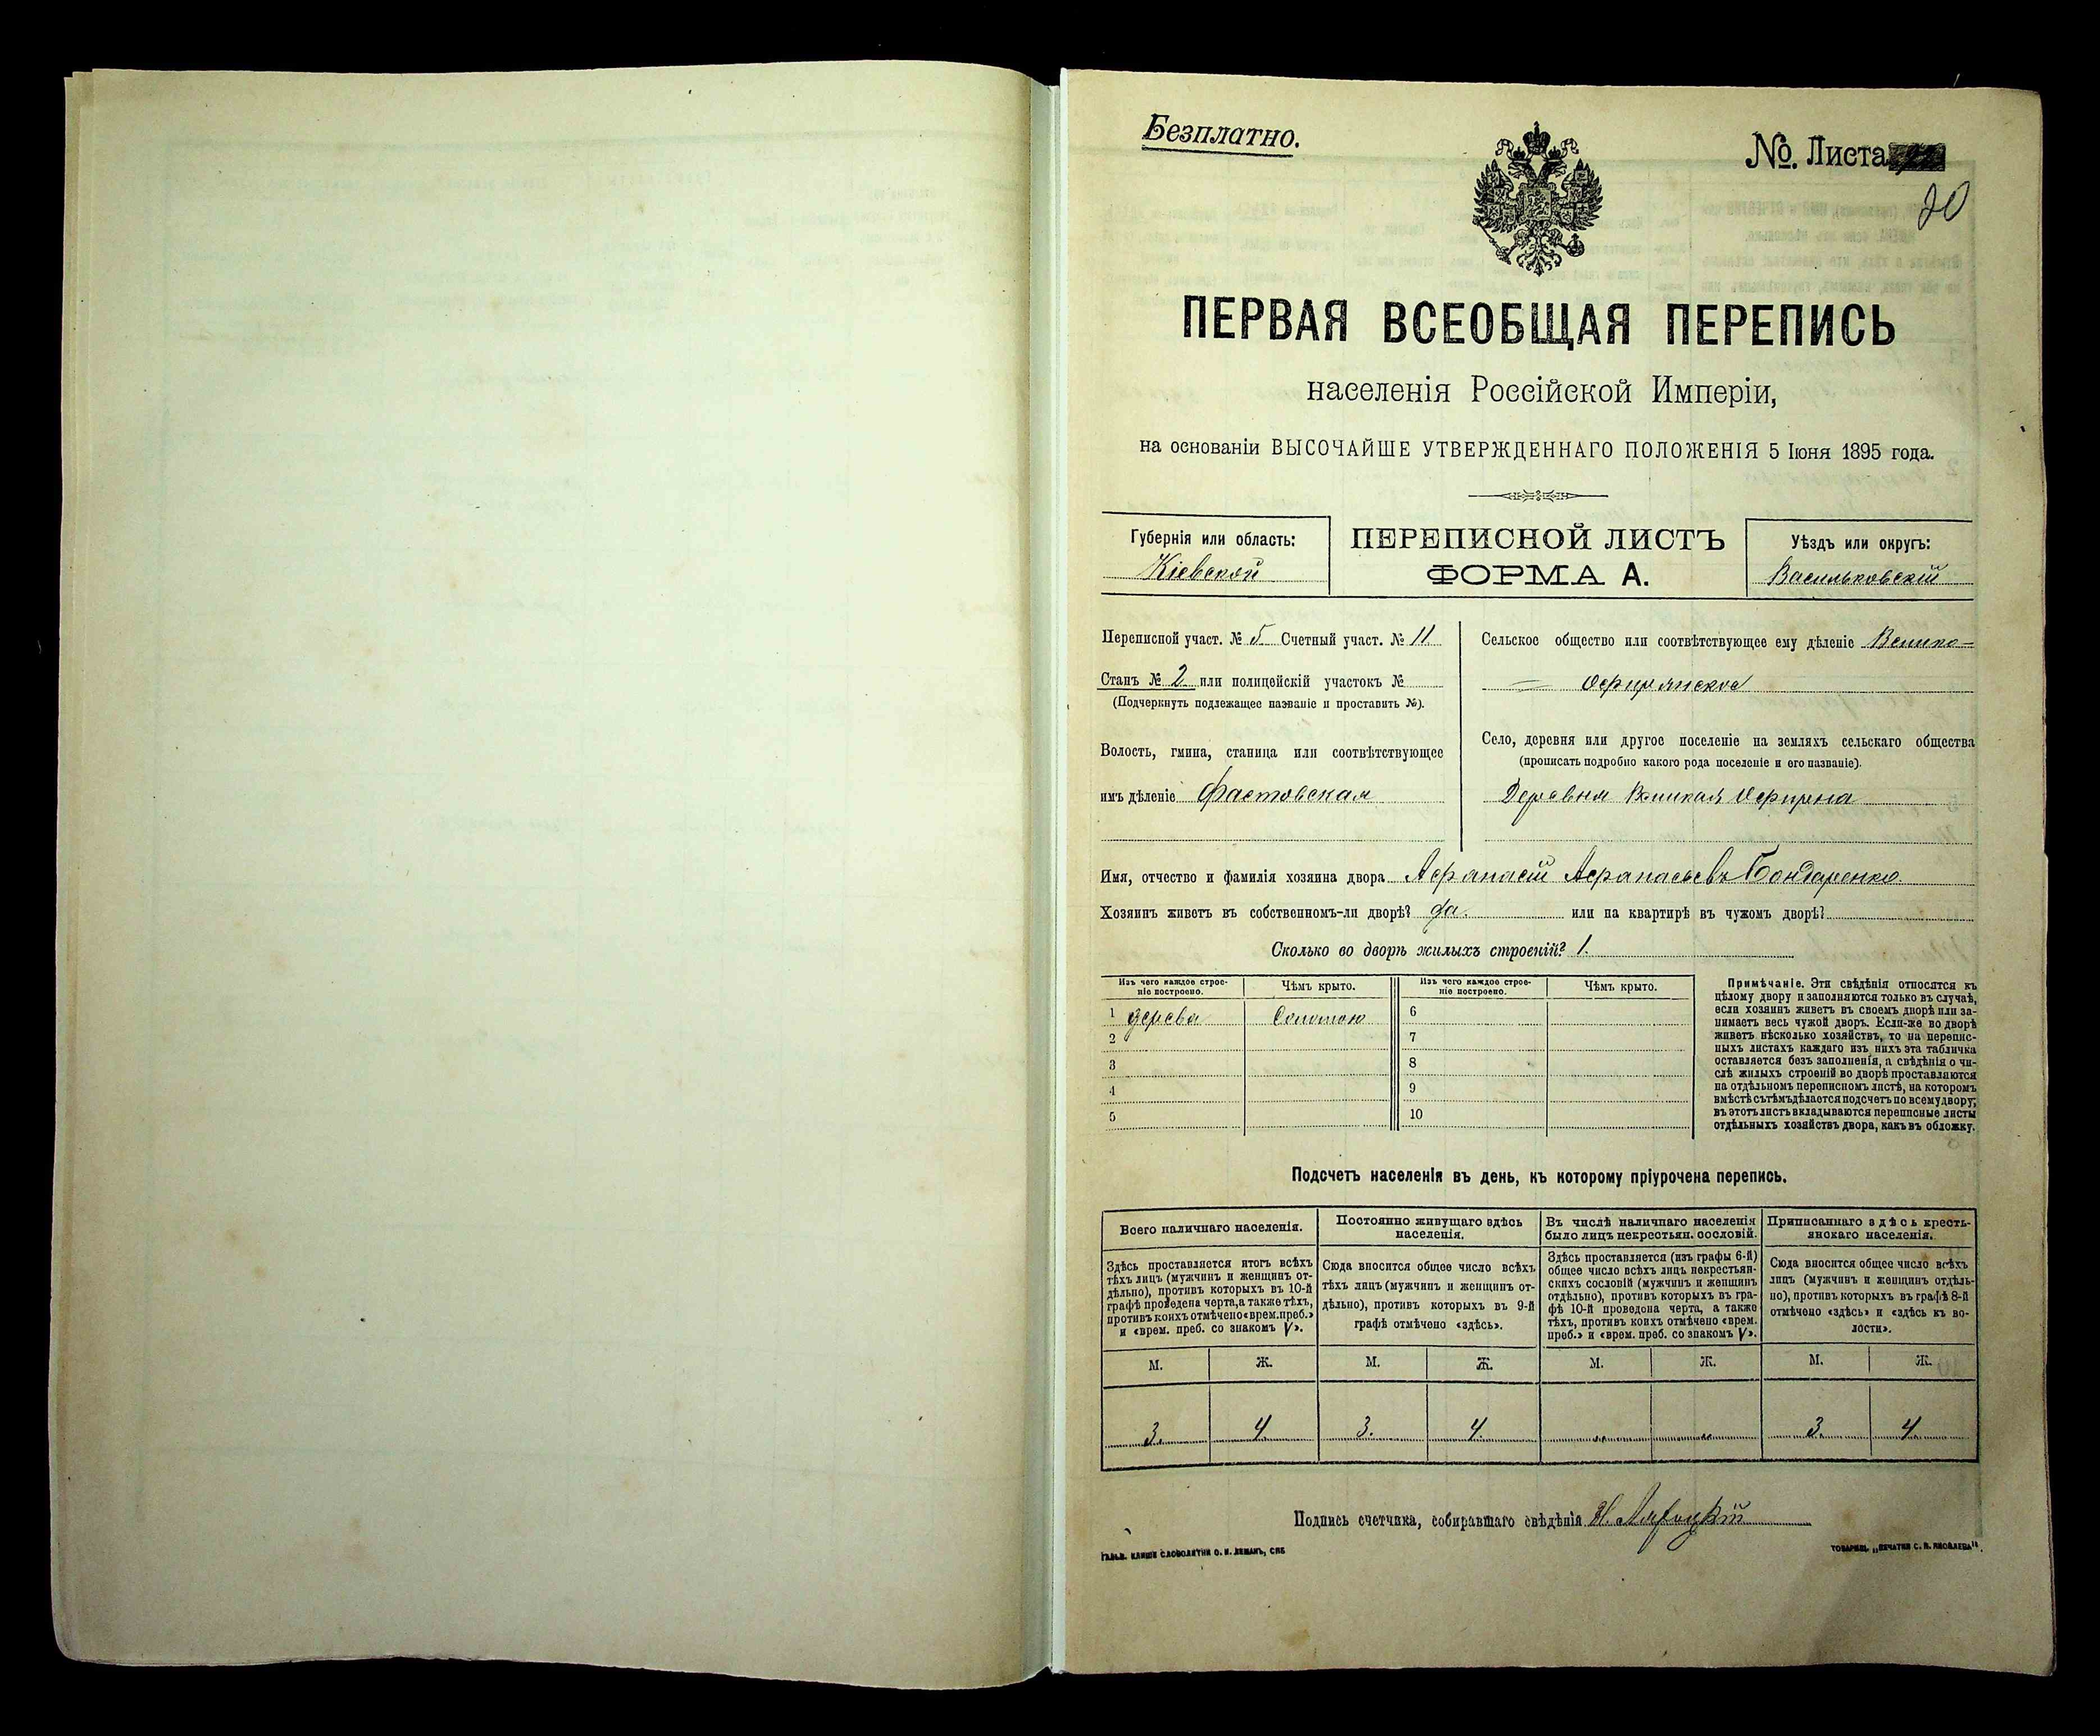 Безплатно.
№. Листа
20
ПЕРВАЯ ВСЕОБЩАЯ ПЕРЕПИСЬ
населенія Россійской Имперіи,
на основаніи ВЫСОЧАЙШЕ УТВЕРЖДЕННАГО ПОЛОЖЕНІЯ 5 Іюня 1895 года.
Губернія или область:
Кіевской
ПЕРЕПИСНОЙ ЛИСТЪ
ФОРМА А.
Уѣздъ или округъ:
Васильковскій
Переписной участ. № 5 Счетный участ. № 11
Станъ № 2 или полицейскій участокъ №
(Подчеркнуть подлежащее названіе и проставить №).
Волость, гмина, станица или соотвѣтствующее
имъ дѣленіе Фастовская
Сельское общество или соотвѣтствующее ему дѣленіе Велико-
- Офирянское
Село, деревня или другое поселеніе на земляхъ сельскаго общества
(прописать подробно какого рода поселеніе и его названіе).
Деревня Великая Офирна
Имя, отчество и фамилія хозяина двора Афанасій Афанасьевъ Бондаренко
Хозяинъ живетъ въ собственномъ-ли дворѣ? да. или на квартирѣ въ чужомъ дворѣ?
Сколько во дворѣ жилыхъ строеній? 1.
Изъ чего каждое строе-
ніе построено.
Чѣмъ крыто.
Изъ чего каждое строе-
ніе построено.
Чѣмъ крыто.
1 дерева Соломою 6
2 7
3 8
4 9
5 10
Примѣчаніе. Эти свѣдѣнія относятся къ
цѣлому двору и заполняются только въ случаѣ,
если хозяинъ живетъ въ своемъ дворѣ или за-
нимаетъ весь чужой дворъ. Если-же во дворѣ
живетъ нѣсколько хозяйствъ, то на перепис-
ныхъ листахъ каждаго изъ нихъ эта табличка
оставляется безъ заполненія, а свѣдѣнія о чи-
слѣ жилыхъ строеній во дворѣ проставляются
на отдѣльномъ переписномъ листѣ, на которомъ
вмѣстѣ съ тѣмъ дѣлается подсчетъ по всему двору;
въ этотъ листъ вкладываются переписные листы
отдѣльныхъ хозяйствъ двора, какъ въ обложку.
Подсчетъ населенія въ день, къ которому пріурочена перепись.
Всего наличнаго населенія.
Здѣсь проставляется итогъ всѣхъ
тѣхъ лицъ (мужчинъ и женщинъ от-
дѣльно), противъ которыхъ въ 10-й
графѣ проведена черта, а также тѣхъ,
противъ коихъ отмѣчено «врем. преб.»
и «врем. преб. со знакомъ V».
Постоянно живущаго здѣсь
населенія.
Сюда вносится общее число всѣхъ
тѣхъ лицъ (мужчинъ и женщинъ от-
дѣльно), противъ которыхъ въ 9-й
графѣ отмѣчено «здѣсь».
Въ числѣ наличнаго населенія
было лицъ некрестьян. сословій.
Здѣсь проставляется (изъ графы 6-й)
общее число всѣхъ лицъ некрестьян-
скихъ сословій (мужчинъ и женщинъ
отдѣльно), противъ которыхъ въ гра-
фѣ 10-й проведена черта, а также
тѣхъ, противъ коихъ отмѣчено «врем.
преб.» и «врем. преб. со знакомъ V».
Приписаннаго здѣсь кресть-
янскаго населенія.
Сюда вносится общее число всѣхъ
лицъ (мужчинъ и женщинъ отдѣль-
но), противъ которыхъ въ графѣ 8-й
отмѣчено «здѣсь» и «здѣсь къ во-
лости».
М. Ж. М. Ж. М. Ж. М. Ж.
3. 4 3. 4 „ „ 3. 4
Подпись счетчика, собиравшаго свѣдѣнія
ГАЛЬВ. КЛИШЕ СЛОВОЛИТНИ О. И. ЛЕМАНЪ, СПБ
ТОВАРИЩ. „ПЕЧАТНЯ С. П. ЯКОВЛЕВА".